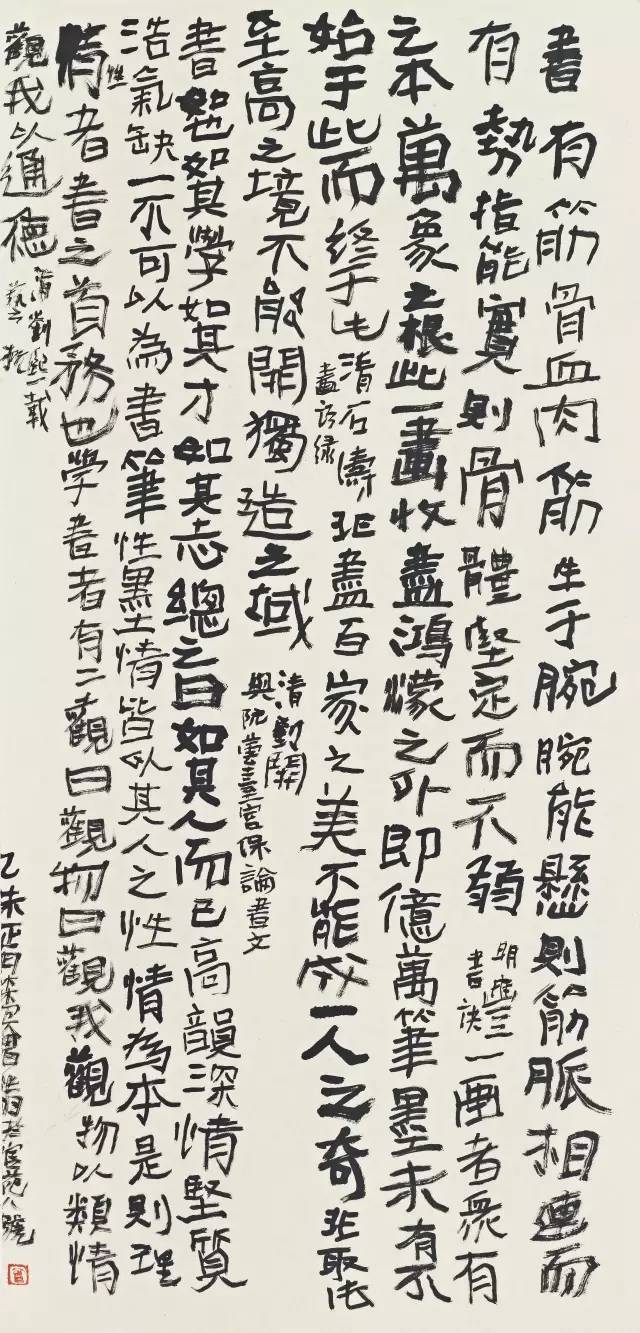 書有筋骨血肉筋生于腕腕能懸則筋脈相連而
有勢指能實則骨體堅定而不弱
明豐
書訣
一画者眾有
之本萬象之根此一畫收盡鴻濛之外即億萬筆墨未有不
始于此而終于此
清石濤
畫語錄
非盡百家之美不能成一人之奇非取法
至高之境不能開獨造之域
清劉開
與阮芸臺宮保論書文
書如也如其學如其才如其志總之曰如其人而已高韻深情堅質
浩氣缺一不可以為書筆性墨情皆以其人之性情為本是則理
性
情者書之首務也学書者有二觀曰觀物曰觀我觀物以類情
觀我以通德
清劉熙載
藝概
乙未正月